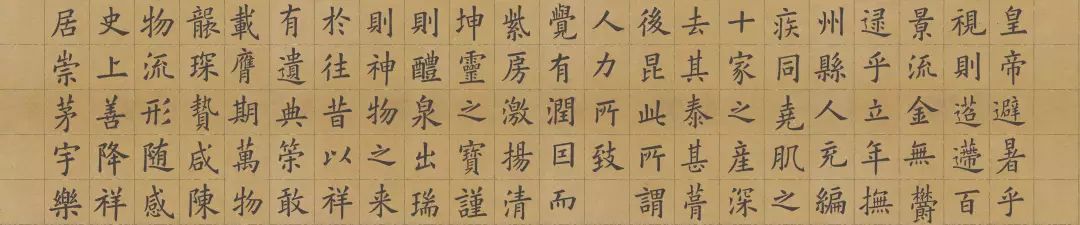 皇帝避暑乎
視則迢遰百
景流金無欝
逮乎立年撫
州縣人充編
疾同堯肌之
十家之產深
去其泰甚葺
後昆此所謂
人力所致
覺有潤囙而
紫房激揚清
坤靈之寶謹
則醴泉出瑞
則神物之来
於往昔以祥
有遺典筞敢
載膺期萬物
襲琛贄咸陳
物流形随感
史上善降祥
居崇茅宇樂